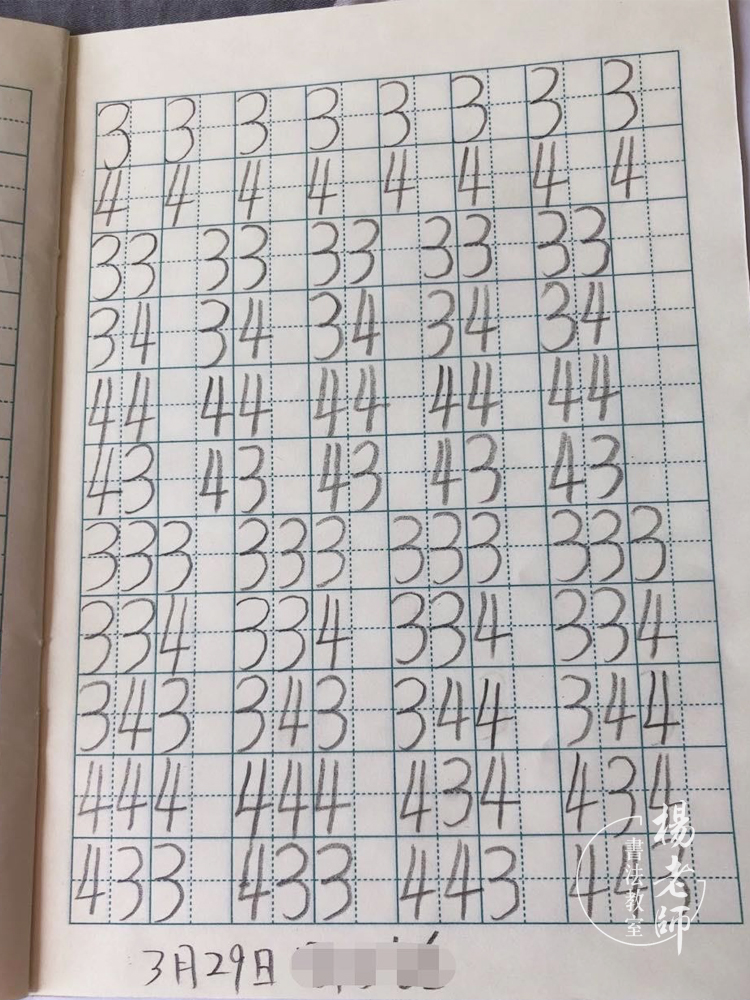 3 3 3 3 3 3 3 3
4 4 4 4 4 4 4 4
33 33 33 33 33
34 34 34 34 34
44 44 44 44 44
43 43 43 43 43
333 333 333 333
334 334 334 334
343 343 344 344
444 444 434 434
433 433 443 44
3月29日
楊老師
書法教室